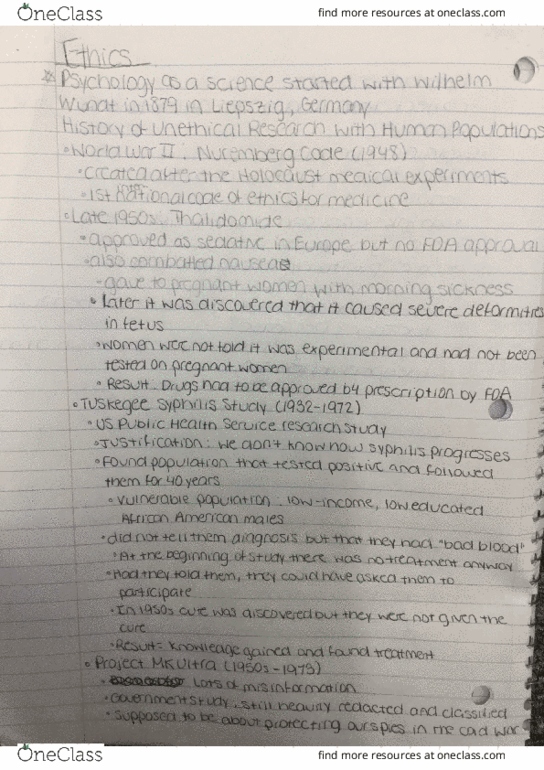 OneClass
find more resources at oneclass.com
Ethics
Psychology as a science started with Wilhelm
Wundt in 1879 in Liepszig, Germany
History of Unethical Research with Human Populations
World War II: Nuremberg Code (1948)
created after the Holocaust medical experiments
1st national code of ethics for medicine
Late 1950s: Thalidomide
approved as sedative in Europe but no FDA approval
also combatted nausea
gave to pregnant women with morning sickness
Later it was discovered that it caused severe deformities
in fetus
women were not told it was experimental and had not been
tested on pregnant women
Result: Drugs had to be approved by prescription by FDA
Tuskegee Syphilis Study (1932-1972)
US Public Health Service research study
Justification: we don't know how syphilis progresses
Found population that tested positive and followed
them for 40 years
vulnerable population: low-income, low educated
African American males
did not tell them diagnosis but that they had "bad blood"
At the beginning of study there was no treatment anyway
Had they told them, they could have asked them to
participate
In 1950s cure was discovered but they were not given the
cure
Result= knowledge gained and found treatment
Project MKUltra (1950s-1973)
Lots of misinformation
Government study, still heavily redacted and classified
supposed to be about protecting our spies in the cold war
OneClass
find more resources at oneclass.com